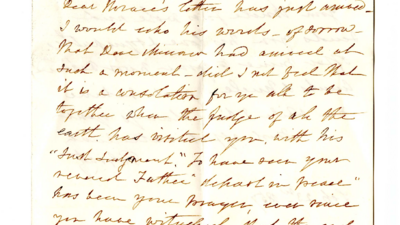 Dear Horace's letter has just arrived -
I would echo his words - of sorrow -
that Dear Munro had arrived at
such a moment - did I not feel that
it is a consolation for ye all to be
together when the Judge of all the
earth has visited you, with his
"Just Judgment." To have seen your
revered Father "depart in peace"
has been your prayer, ever since
you have witnessed